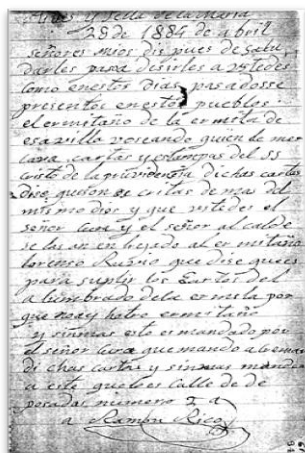 y Villa de la Maria
28 de 1884 de abril
señores mios dispues de salu
darles pasa desirles a ustedes
como enestos dias pasadosse
presento enestos pueblos
el ermitaño de la ermita de
esa villa voseando quien le mer
cava cartas y estampas del SS
cristo de la providencia dichas cartas
dise quison escritas de mas del
mismo dios y que ustedes el
señor cura y el señor alcalde
se las an en al ermitaño
lorenso Rubio que dise ques
para suplir los gastos del
alumbrado dela ermeta por
que noay hotro ermitaño
y sinmas este es mandado por
el señor cura que mando
di chas cartas y sinmas manda
a este quebes Calle de
posadas numero 2 a
a Ramon Rico